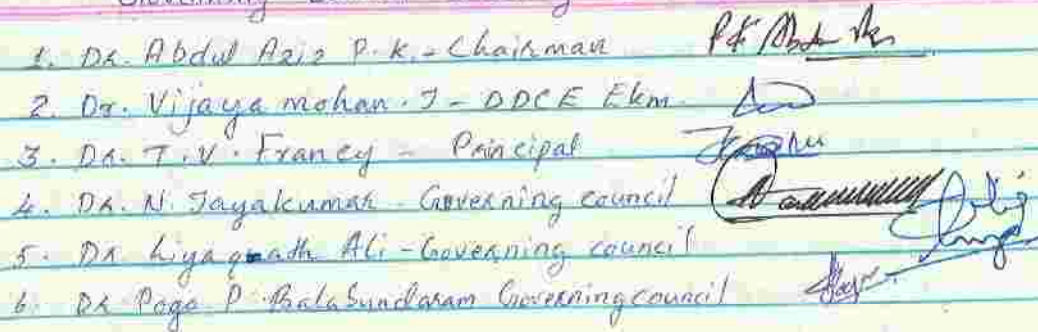 Governing
1. Dr. Abdul Aziz P.K. - Chairman
2. Dr. Vijaya mohan. J - DDCE Ekm.
3. Dr. T.V. Francy - Principal
4. Dr. N. Jayakumar - Governing council
5. Dr Liyaqath Ali - Governing council
6. Dr Page P. Balasundaram Governing council